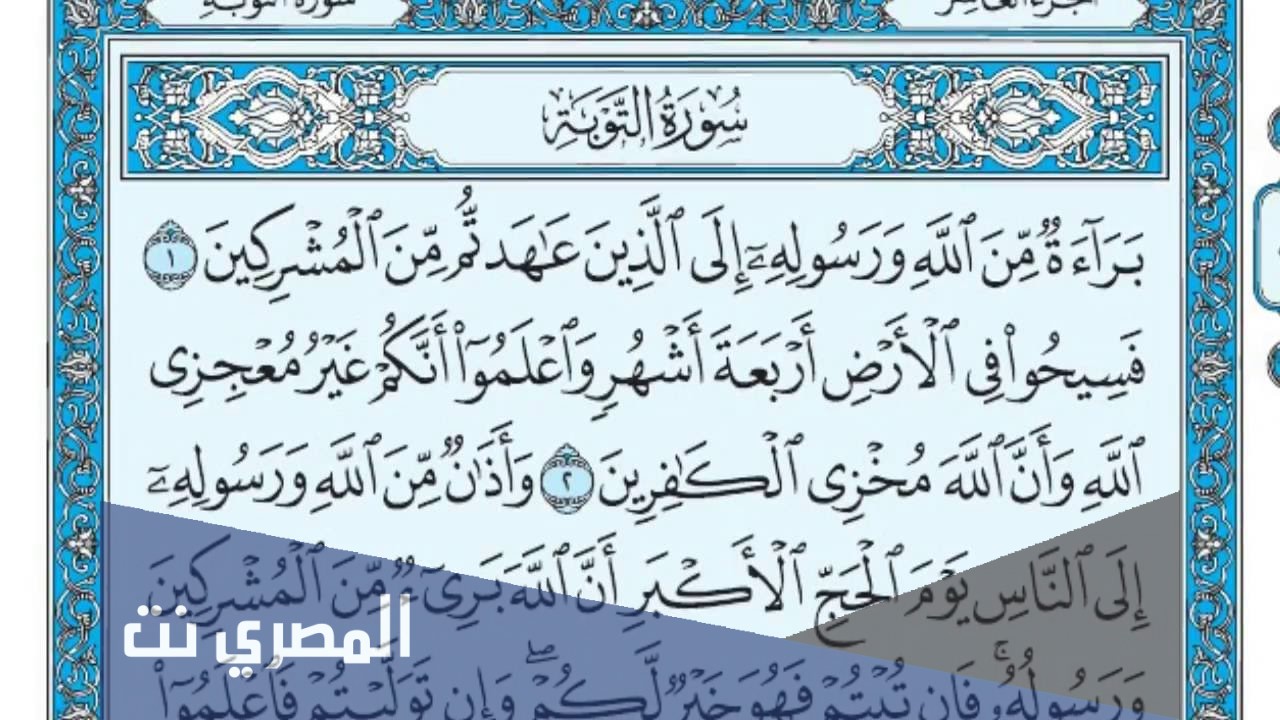 الجزء العاشر
سورة التوبة
سُورَةُ التَّوۡبَةِ
بَرَآءَةٌ مِّنَ ٱللَّهِ وَرَسُولِهِۦٓ إِلَى ٱلَّذِينَ عَٰهَدتُّم مِّنَ ٱلۡمُشۡرِكِينَ ١
فَسِيحُواْ فِي ٱلۡأَرۡضِ أَرۡبَعَةَ أَشۡهُرٖ وَٱعۡلَمُوٓاْ أَنَّكُمۡ غَيۡرُ مُعۡجِزِي
ٱللَّهِ وَأَنَّ ٱللَّهَ مُخۡزِي ٱلۡكَٰفِرِينَ ٢ وَأَذَٰنٞ مِّنَ ٱللَّهِ وَرَسُولِهِۦٓ
إِلَى ٱلنَّاسِ يَوۡمَ ٱلۡحَجِّ ٱلۡأَكۡبَرِ أَنَّ ٱللَّهَ بَرِيٓءٞ مِّنَ ٱلۡمُشۡرِكِينَ
وَرَسُولُهُۥۚ فَإِن تُبۡتُمۡ فَهُوَ خَيۡرٞ لَّكُمۡۖ وَإِن تَوَلَّيۡتُمۡ فَٱعۡلَمُوٓاْ
المصري نت